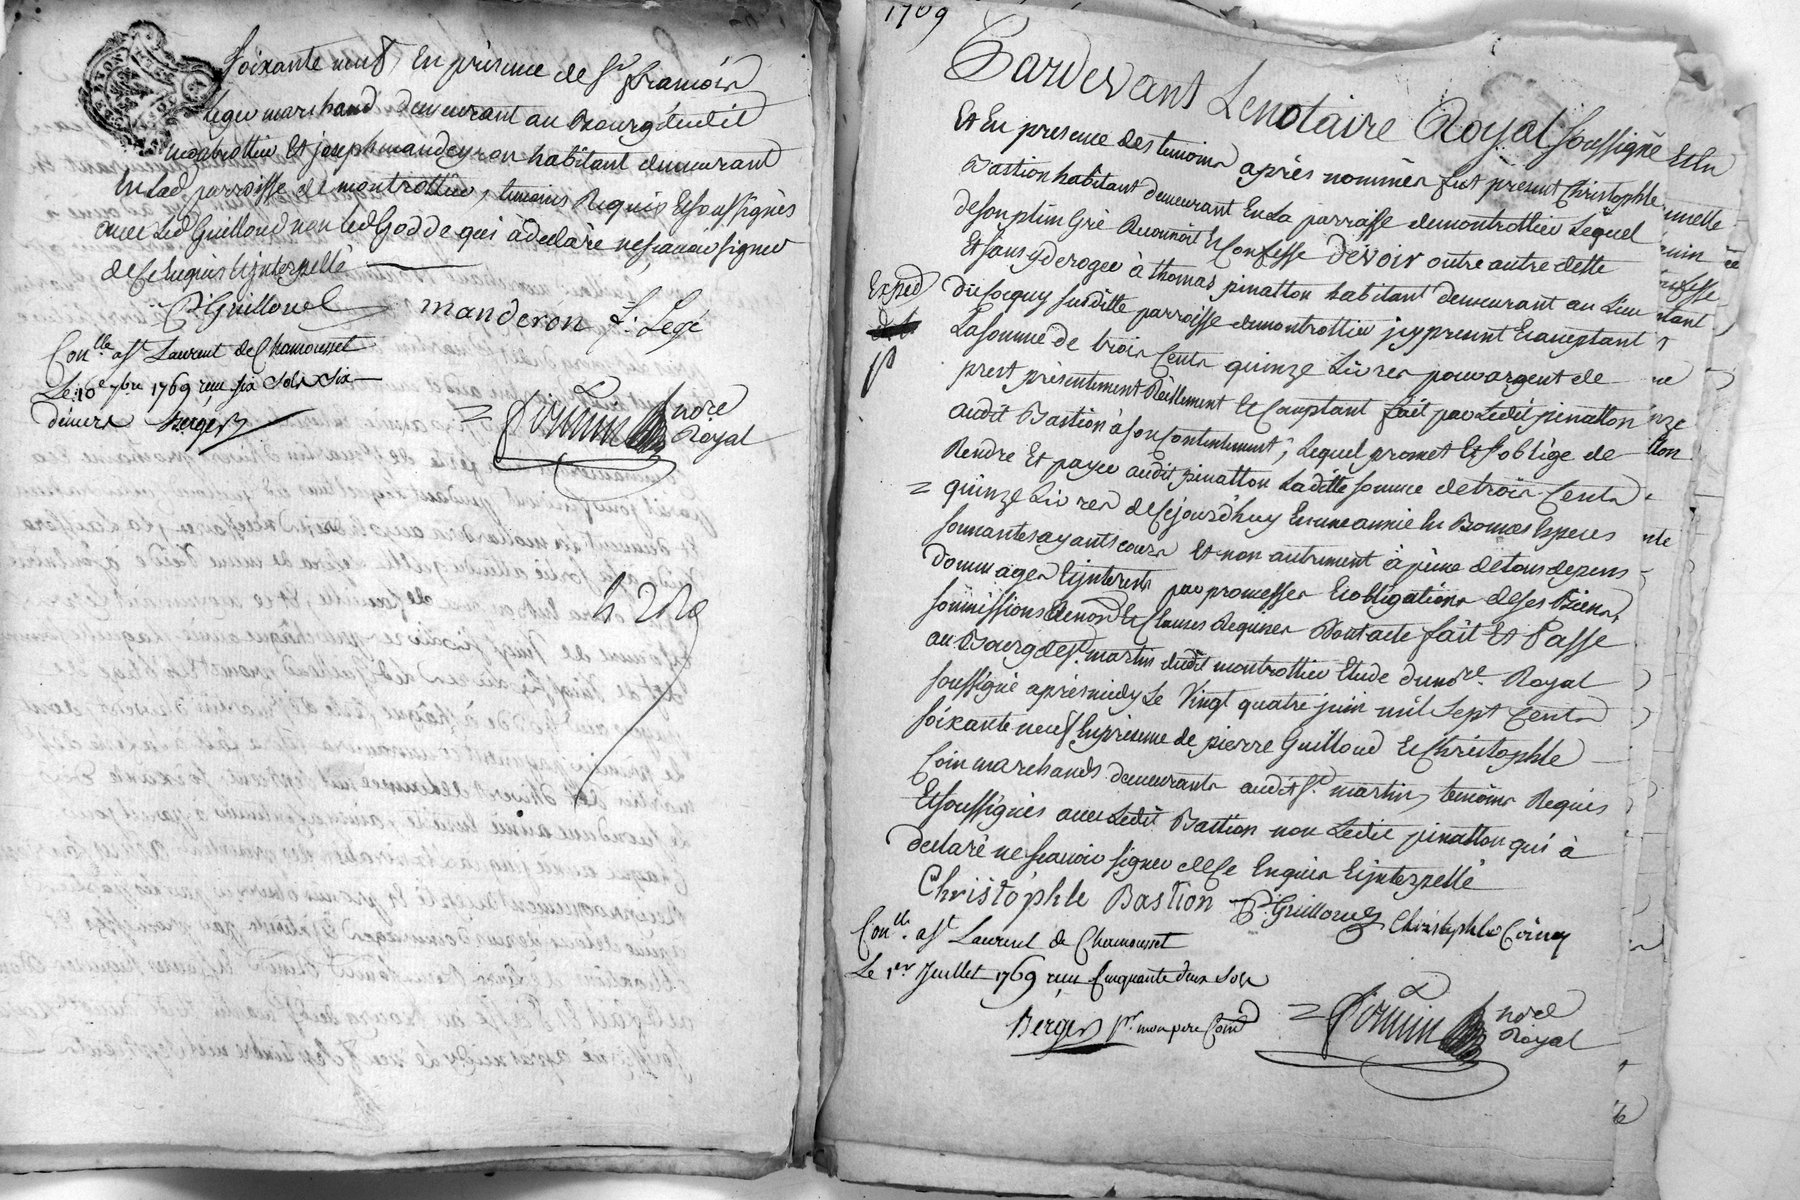 soixante neuf, En présence de Sr. françois
legeu marchand demeurant au Bourg dudit
montrottier Et joseph manderon habitant demeurant
En lad. parroisse de montrottier, temoins Requis Et soussignés
avec Led Guilloud non led Godde qui à declaré ne sçavoir signer
de ce Enquis Et jnterpellé
P Guilloud manderon f: Legé
Conlle. a St Laurent de Chamousset
Le 16e 7bre 1769 reçu six sols six
deniers Berger
nore
Royal
1769
Pardevant Le notaire Royal soussigné
Et En presence des temoins après nommés fut présent Christophle
Bastion habitant demeurant En La parroisse de montrottier Lequel
de son plein Gré Reconnoit Et Confesse devoir outre autre dette
Et sans y deroger à thomas pinatton habitant demeurant au Lieu
Exped
du socquy susditte parroisse de montrottier jcy present Et acceptant
La somme de trois Cents quinze Livres pour argent de
prest présentement Réellement Et Comptant fait par Ledit pinatton
audit Bastion à son Contentement, Lequel promet Et s'oblige de
Rendre Et payer audit pinatton Laditte somme de trois Cents
quinze Livres de Cejourd'huy En une année En Bonnes Especes
sonnantes ayants cours Et non autrement à peine de tous depens
dommages Et jnterests par promesses Et obligations de ses Biens,
soûmissions Renons Et Clauses Requises Dont acte fait Et Passé
au Bourg de St. martin dudit montrottier Etude du nore. Royal
soussigné après midy Le Vingt quatre juin mil sept Cents
soixante neuf En présence de pierre Guilloud Et Christophle
Coin marchands demeurants audit St. martin, temoins Requis
Et soussignés avec Ledit Bastion non Ledit pinatton qui à
declaré ne sçavoir signer de ce Enquis Et jnterpellé
Christophle Bastion P. Guilloud Christophle Coin
Conlle. a St Laurent de Chamousset
Le 1er Juillet 1769 reçu Cinquante deux sols
Berger pr. mon pere
nore
Royal